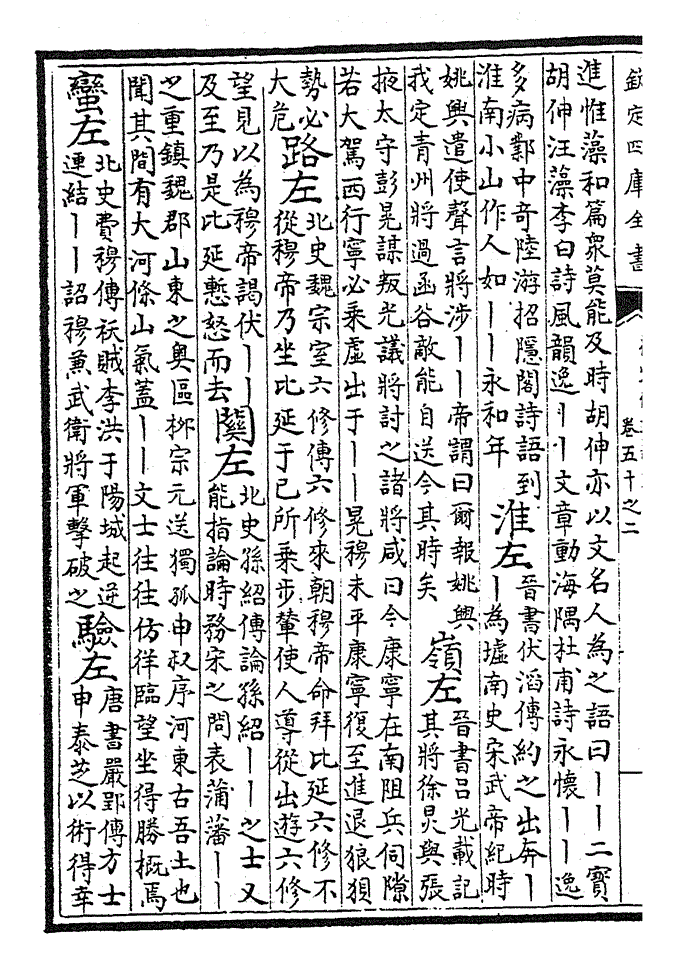 欽定四庫全書
卷五十之二
進惟藻和篇衆莫能及時胡伸亦以文名人為之語曰——二寳
胡伸汪藻李白詩風韻逸——文章動海隅杜甫詩永懷——逸
多病鄴中奇陸游招隱閣詩語到
淮南小山作人如——永和年
淮左
晉書伏滔傳約之出奔—
—為墟南史宋武帝紀時
姚興遣使聲言將涉——帝謂曰爾報姚興
我定青州將過函谷敵能自送今其時矣
嶺左
晉書呂光載記
其將徐炅與張
掖太守彭晃謀叛光議將討之諸將咸曰今康寧在南阻兵伺隙
若大駕西行寧必乗虛出于——晃穆未平康寧復至進退狼狽
勢必
大危
路左
北史魏宗室六修傳六修來朝穆帝命拜比延六修不
從穆帝乃坐比延于已所乗步輦使人導從出遊六修
望見以為穆帝謁伏——
及至乃是比延慙怒而去
闗左
北史孫紹傳論孫紹——之士又
能指論時務宋之問表蒲藩——
之重鎮魏郡山東之奥區栁宗元送獨孤申叔序河東古吾土也
聞其間有大河條山氣蓋——文士往往仿徉臨望坐得勝概焉
蠻左
北史費穆傳祅賊李洪于陽城起逆
連結——詔穆兼武衛將軍擊破之
驗左
唐書嚴郢傳方士
申泰芝以術得幸